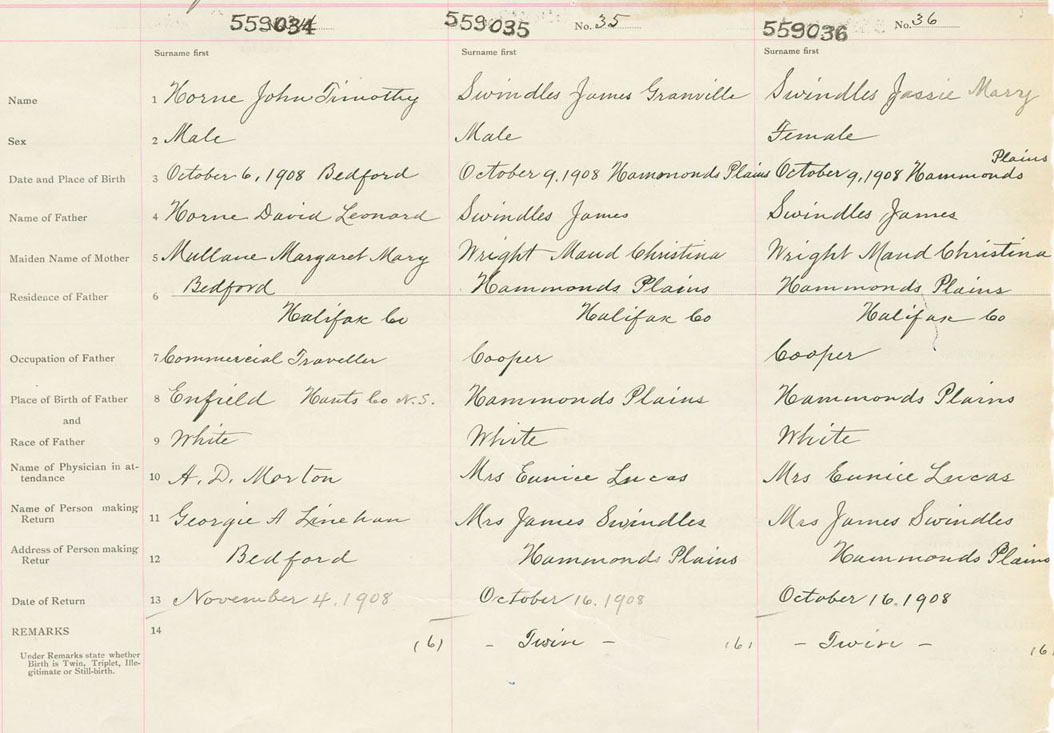 559034 559035 No. 35 559036 No. 36
Surname first Surname first Surname first
Name 1 Horne John Timothy Swindles James Granville Swindles Jessie Mary
Sex 2 Male Male Female
Plains
Date and Place of Birth 3 October 6, 1908 Bedford October 9, 1908 Hammonds Plains October 9, 1908 Hammonds
Name of Father 4 Horne David Leonard Swindles James Swindles James
Maiden Name of Mother 5 Mullane Margaret Mary Wright Maud Christina Wright Maud Christina
Bedford Hammonds Plains Hammonds Plains
Residence of Father 6
Halifax Co Halifax Co Halifax Co
Occupation of Father 7 Commercial Traveller Cooper Cooper
Place of Birth of Father 8 Enfield Hants Co N.S. Hammonds Plains Hammonds Plains
and
Race of Father 9 White White White
Name of Physician in at-
tendance 10 A. D. Morton Mrs Eunice Lucas Mrs Eunice Lucas
Name of Person making
Return 11 Georgie A Linehan Mrs James Swindles Mrs James Swindles
Address of Person making
Retur 12 Bedford Hammonds Plains Hammonds Plains
Date of Return 13 November 4. 1908 October 16. 1908 October 16. 1908
REMARKS 14
(6) - Twin - (6) - Twin - (6)
Under Remarks state whether
Birth is Twin, Triplet, Ille-
gitimate or Still-birth.